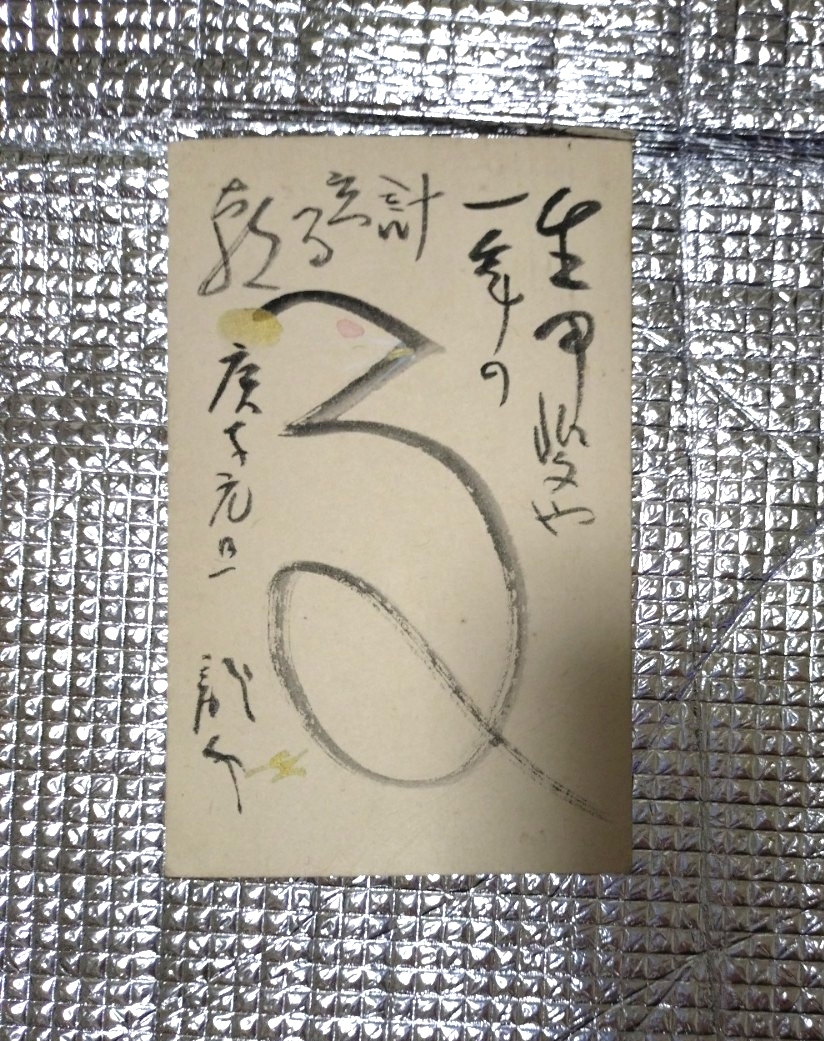 生甲斐や
一年の
計立る朝
庚子元旦